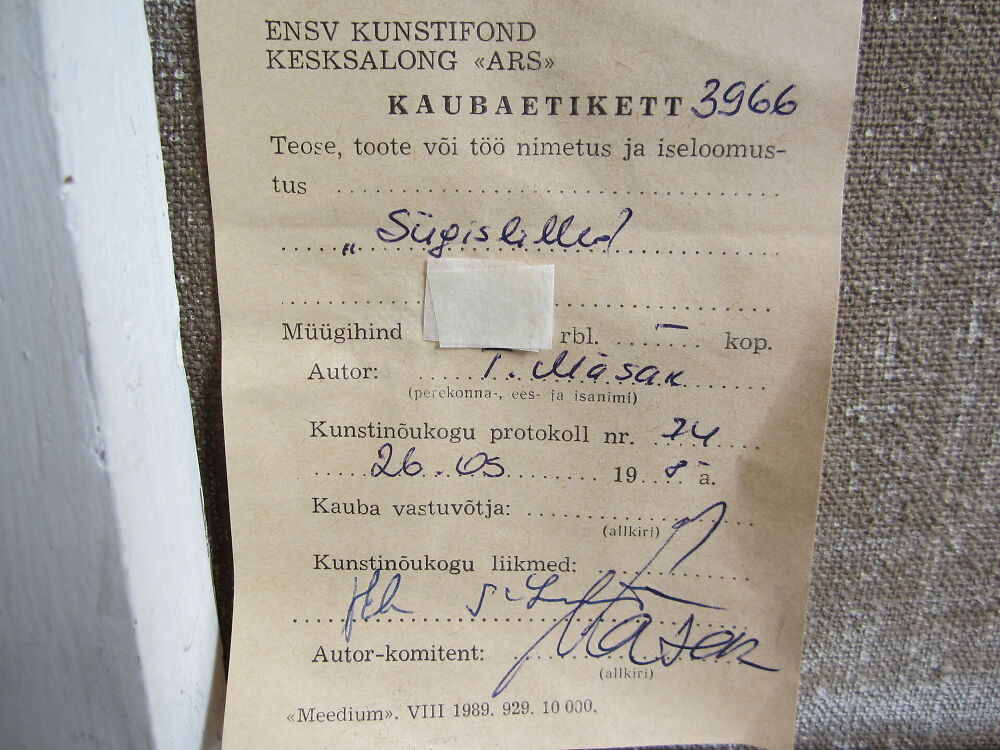 ENSV KUNSTIFOND
KESKSALONG «ARS»
KAUBAETIKETT 3966
Teose, toote või töö nimetus ja iseloomus-
tus
„Sügislilled
Müügihind rbl. — kop.
Autor: T. Mäsak
(perekonna-, ees- ja isanimi)
Kunstinõukogu protokoll nr. 74
26. 05 19 a.
Kauba vastuvõtja:
(allkiri)
Kunstinõukogu liikmed:
Autor-komitent:
(allkiri)
«Meedium». VIII 1989. 929. 10 000.